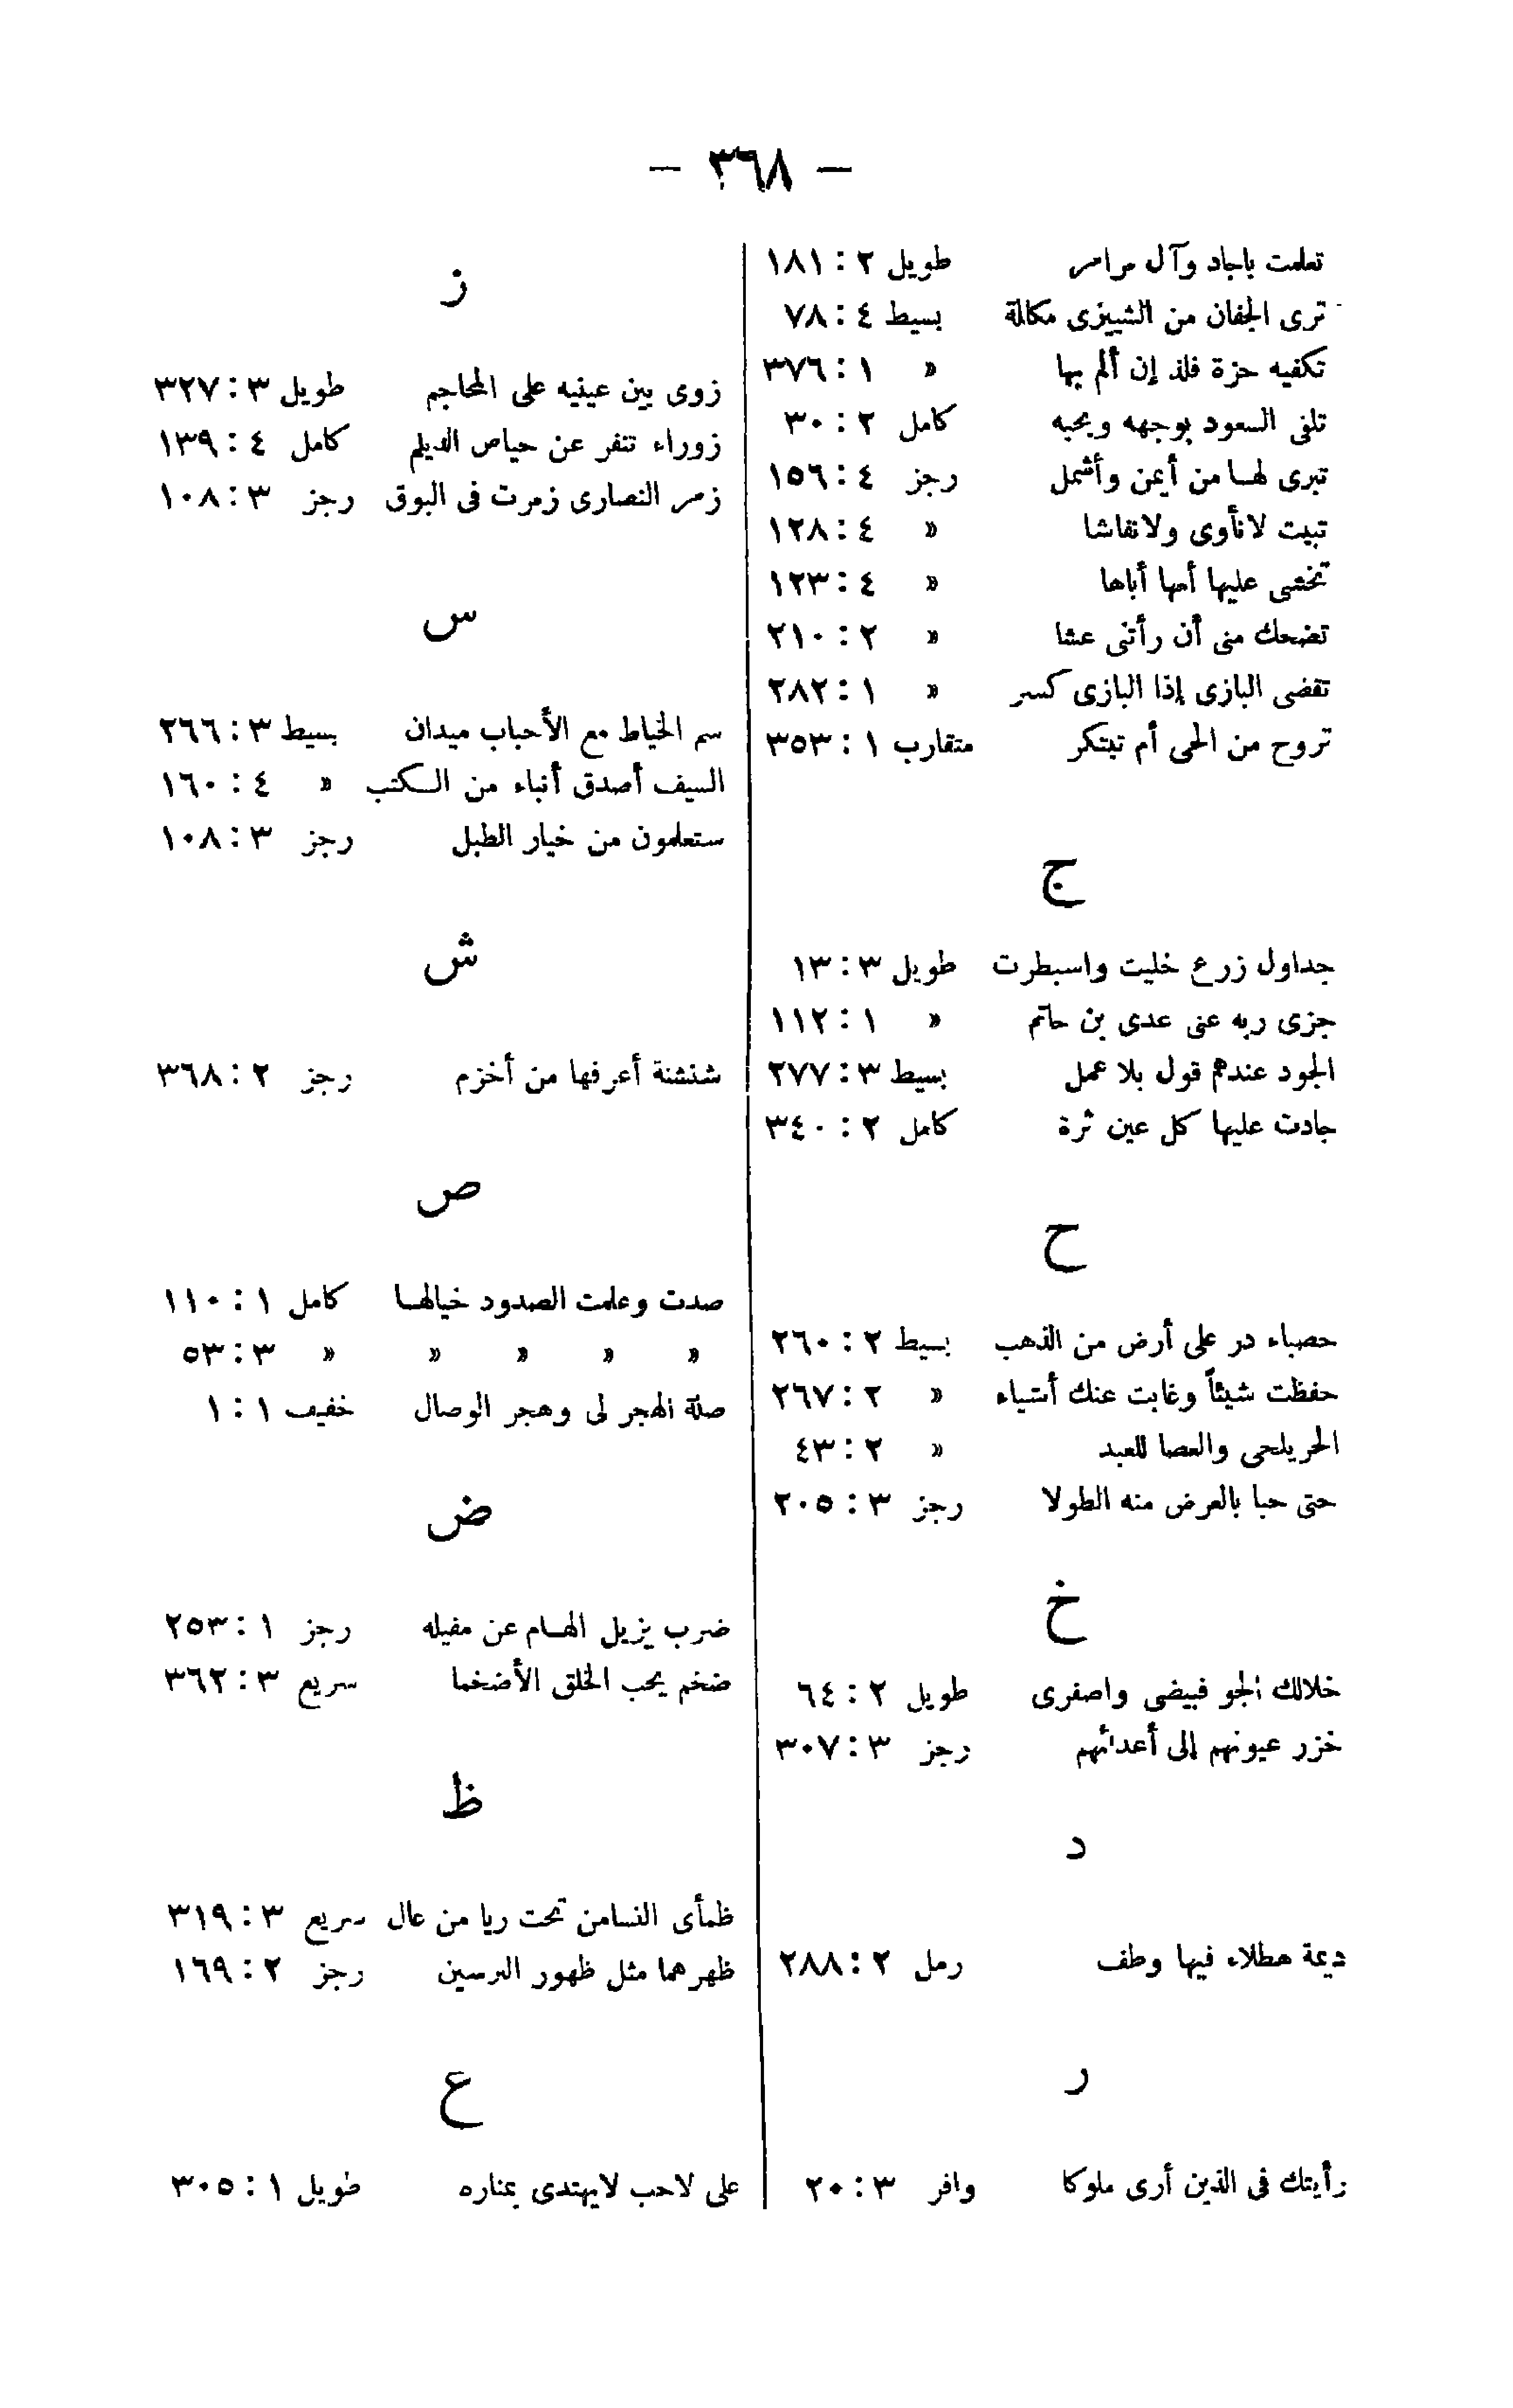 — ٣٦٨ —
تعلمت باجاد وآل مرامر طويل ٢ : ١٨١
ترى الجفان من الشيزى مكللة بسيط ٤ : ٧٨
تكفيه حزة فلذ إن ألم بها » ١ : ٣٧٦
تلقى السعود بوجهه وبحبه كامل ٢ : ٣٠
تبرى لها من أيمن وأشمل رجز ٤ : ١٥٦
تبيت لا تأوى ولا نفاشا » ٤ : ١٢٨
تخشى عليها أمها أباها » ٤ : ١٢٣
تضحك منى أن رأتنى عشا » ٢ : ٢١٠
تقضى البازى إذا البازى كسر » ١ : ٢٨٢
تروح من الحى أم تبتكر متقارب ١ : ٣٥٣
ج
جداول زرع خليت واسبطرت طويل ٣ : ١٣
جزى ربه عنى عدى بن حاتم » ١ : ١١٢
الجود عندهم قول بلا عمل بسيط ٣ : ٢٧٧
جادت عليها كل عين ثرة كامل ٢ : ٣٤٠
ح
حصباء در على أرض من الذهب بسيط ٢ : ٢٦٠
حفظت شيئاً وغابت عنك أشياء » ٢ : ٢٦٧
الحر يلحى والعصا للعبد » ٢ : ٤٣
حتى حبا بالعرض منه الطولا رجز ٣ : ٢٠٥
خ
خلالك الجو فبيضى واصفرى طويل ٢ : ٦٤
خزر عيونهم إلى أعدائهم رجز ٣ : ٣٠٧
د
ديمة هطلاء فيها وطف رمل ٢ : ٢٨٨
ر
رأيتك فى الذين أرى ملوكا وافر ٣ : ٢٠
ز
زوى بين عينيه على المحاجم طويل ٣ : ٣٢٧
زوراء تنفر عن حياض الديلم كامل ٤ : ١٣٩
زمر النصارى زمرت فى البوق رجز ٣ : ١٠٨
س
سم الخياط مع الأحباب ميدان بسيط ٣ : ٢٦٦
السيف أصدق أنباء من الكتب » ٤ : ١٦٠
ستعلمون من خيار الطبل رجز ٣ : ١٠٨
ش
شنشنة أعرفها من أخزم رجز ٢ : ٣٦٨
ص
صدت وعلمت الصدود خيالها كامل ١ : ١١٠
» » » » » ٣ : ٥٣
صلة الهجر لى وهجر الوصال خفيف ١ : ١
ض
ضرب يزيل الهام عن مقيله رجز ١ : ٢٥٣
ضخم يحب الخلق الأضخما سريع ٣ : ٣٦٢
ظ
ظمأى النسا من تحت ريا من عال سريع ٣ : ٣١٩
ظهرهما مثل ظهور الترسين رجز ٢ : ١٦٩
ع
على لاحب لايهتدى بمناره طويل ١ : ٣٠٥